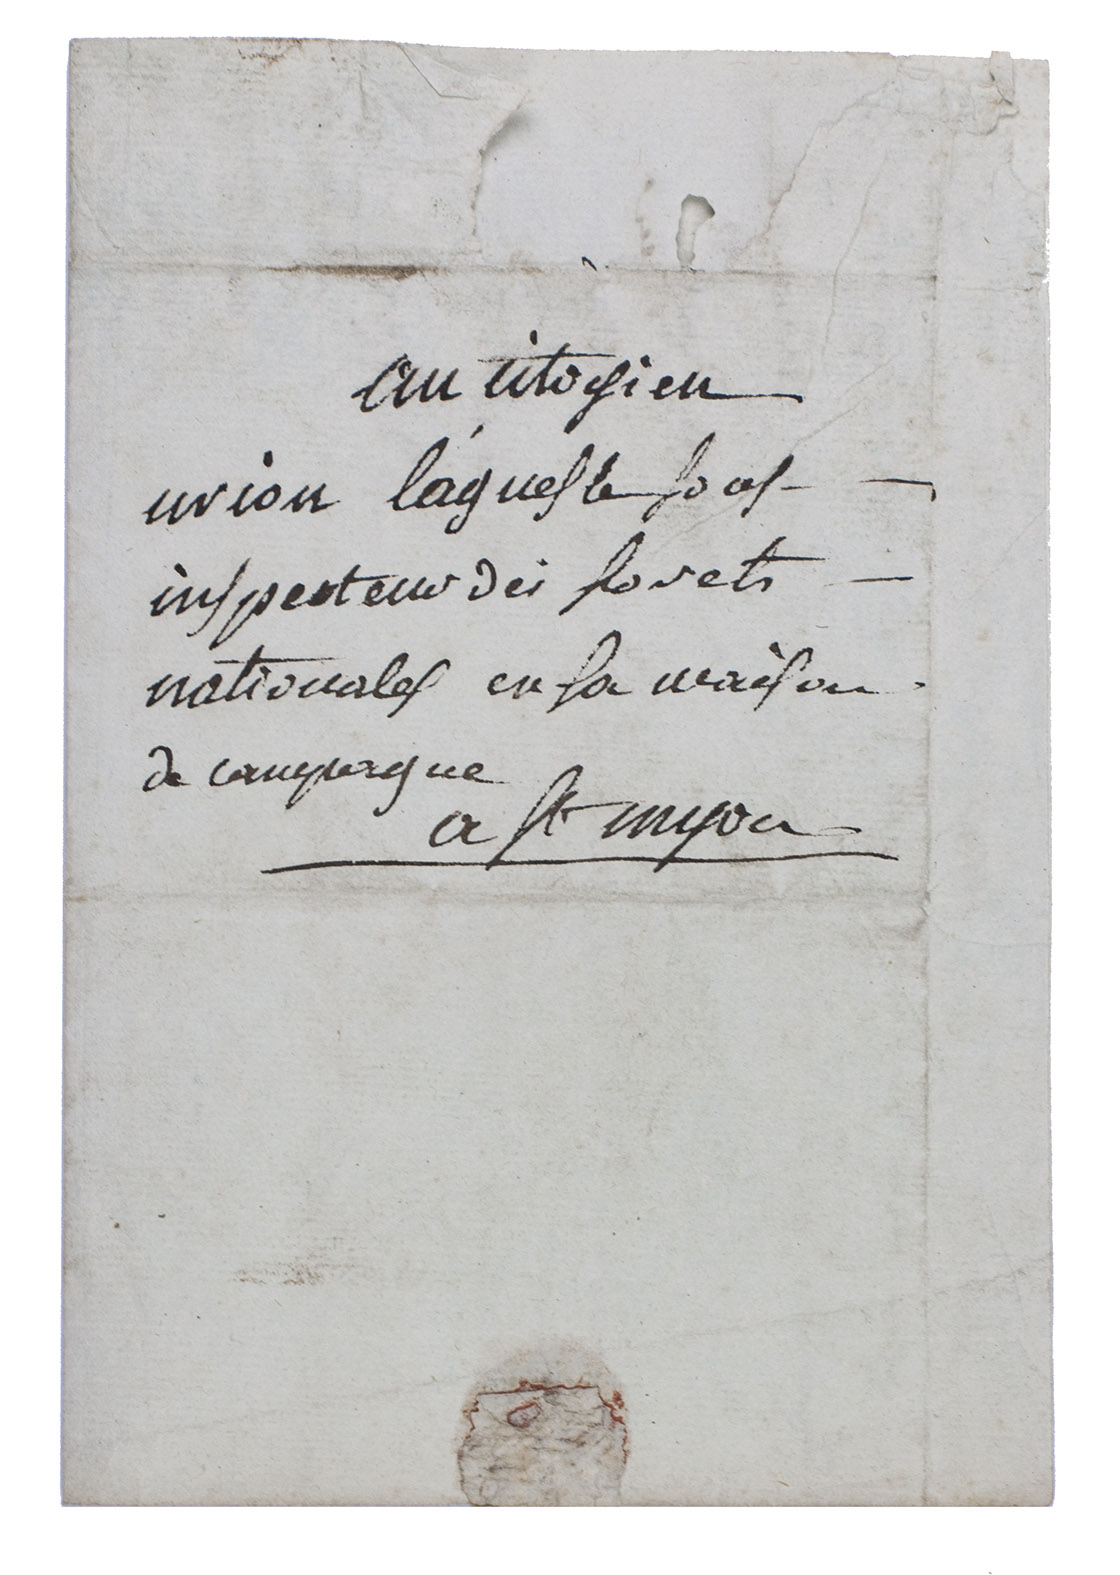 au citoyien
urion láqueste sous
inspecteur des forets
nationales en sa maison
de campagne
a St myon